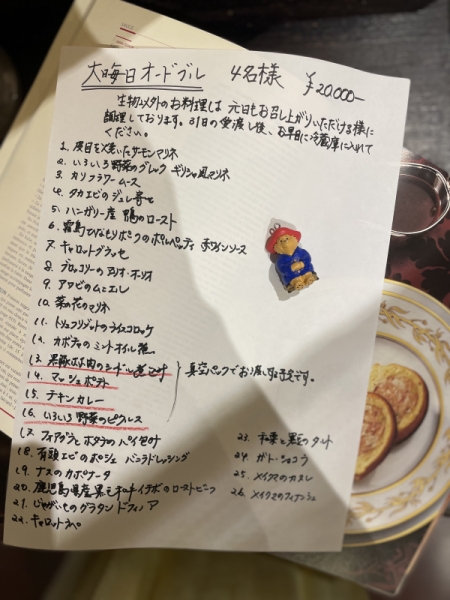 大晦日オードブル 4名様 ¥20,000-
生物以外のお料理は 元日もお召し上がりいただける様に
調理しております。31日の受渡し後、お早目に冷蔵庫に入れて
ください。
1. 皮目を焼いたサーモンマリネ
2. いろいろ野菜のグレック ギリシャ風マリネ
3. カリフラワームース
4. タカエビのジュレ寄せ
5. ハンガリー産 鴨のロースト
6. 霧島ひなもりポークのポルペッティ 赤ワインソース
7. キャロットグラッセ
8. ブロッコリーのアーリオ・オーリオ
9. アワビのムニエル
10. 菜の花のマリネ
11. トリュフリゾットのライスコロッケ
12. カボチャのミントオイル煮
13. 黒豚ホホ肉の
14. マッシュポテト
15. チキンカレー
16. いろいろ野菜のピクルス
真空パックでお渡し予定です。
17. フォアグラとホタテのパイ包み
18. 有頭エビのポシェ バニラドレッシング
19. ナスのカポナータ
20. 鹿児島県産黒毛和牛イチボのローストビーフ
21. じゃがいものグラタン ドフィノア
22. キャロットラペ
23. 和栗と黒豆のタルト
24. ガトーショコラ
25. メイクスのカヌレ
26. メイクスのフィナンシェ